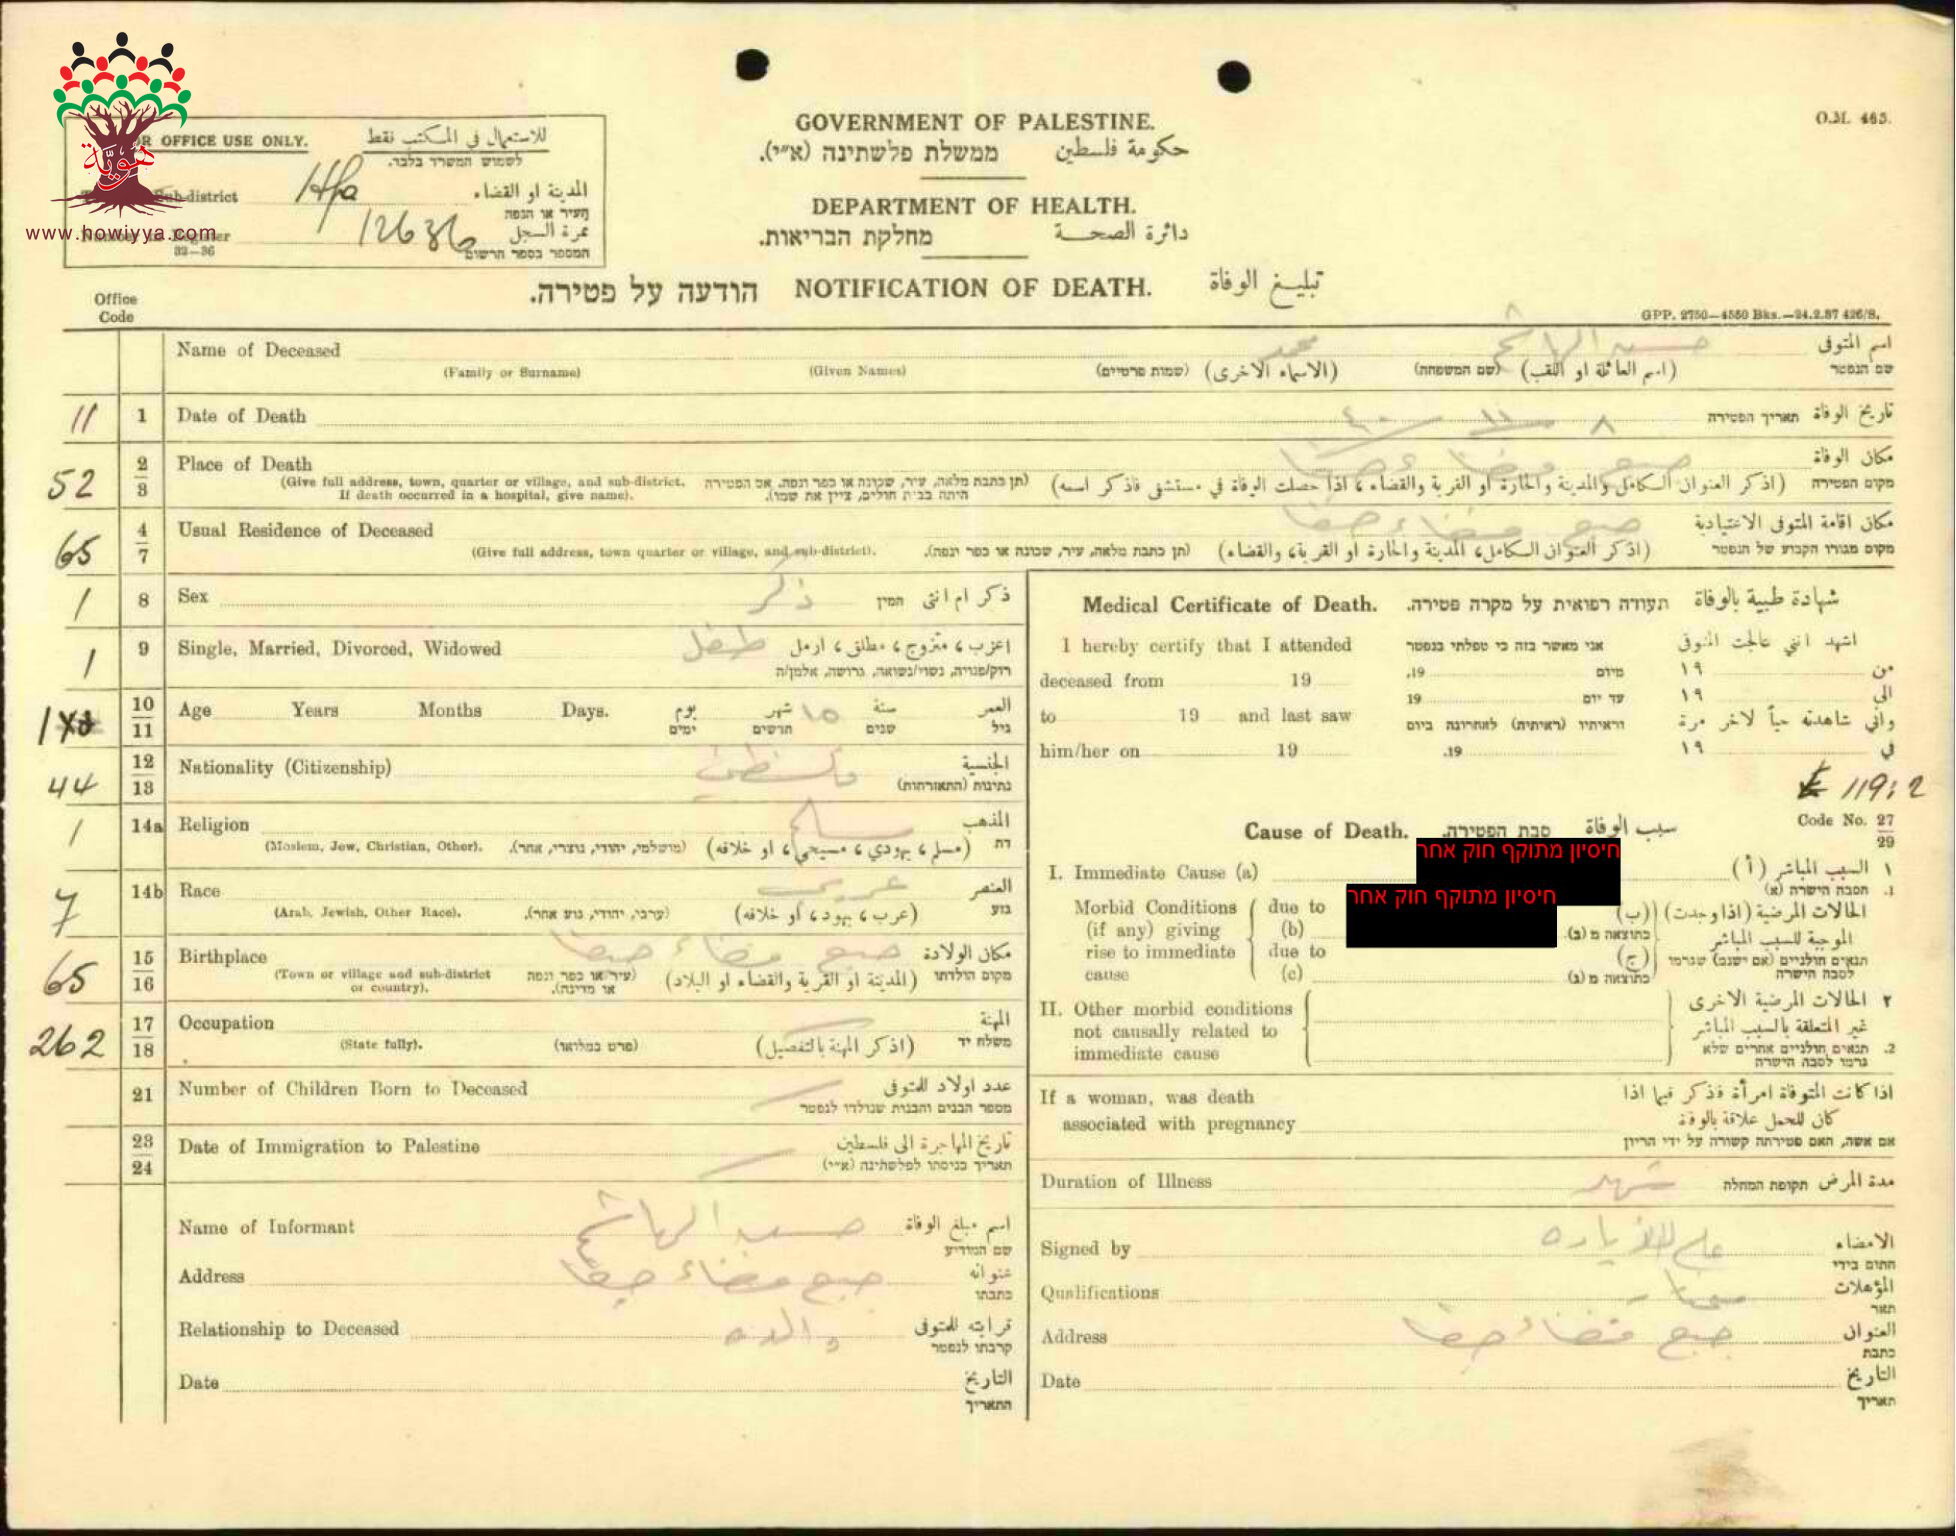 هوية
www.howiyya.com
O.M. 465.
FOR OFFICE USE ONLY. للاستعمال في المكتب فقط
לשמוש המשרד בלבד.
Sub-district Hfa المدينة او القضاء
העיר או הנפה
Number in Register 12636 نمرة السجل
32—36 המספר בספר הרשום
GOVERNMENT OF PALESTINE.
ממשלת פלשתינה (א״י). حكومة فلسطين
DEPARTMENT OF HEALTH.
מחלקת הבריאות. دائرة الصحة
הודעה על פטירה. NOTIFICATION OF DEATH. تبليغ الوفاة
Office
Code
GPP. 2750—4550 Bks.—24.2.37 426/S.
Name of Deceased محمد حسيد الهاشم اسم المتوفى
(Family or Surname) (Given Names) (שמות פרטיים) (الاسماء الاخرى) (שם המשפחה) (اسم العائلة او اللقب) שם הנפטר
11 1 Date of Death ٨ ١١ ٤٠ תאריך הפטירה تاريخ الوفاة
52 2/3 Place of Death جبع قضاء حيفا مكان الوفاة
(Give full address, town, quarter or village, and sub-district. (תן כתבת מלאה, עיר, שכונה או כפר ונפה. אם הפטירה
If death occurred in a hospital, give name). היתה בבית חולים, ציין את שמו).
(اذكر العنوان الكامل والمدينة والحارة او القرية والقضاء، اذا حصلت الوفاة في مستشفى فاذكر اسمه) מקום הפטירה
65 4/7 Usual Residence of Deceased جبع قضاء حيفا مكان اقامة المتوفى الاعتيادية
(Give full address, town quarter or village, and sub-district). (תן כתבת מלאה, עיר, שכונה או כפר ונפה). (اذكر العنوان الكامل، المدينة والحارة او القرية، والقضاء) מקום מגורו הקבוע של הנפטר
1 8 Sex ذكر המין ذكر ام انثى
1 9 Single, Married, Divorced, Widowed طفل اعزب، متزوج، مطلق، ارمل
רוק/פנויה, נשוי/נשואה, גרושה, אלמן/ה
10/11 Age Years Months Days. يوم شهر ١٥ سنة العمر
ימים חדשים שנים גיל
44 12/13 Nationality (Citizenship) فلسطيني الجنسية
נתינות (התאזרחות)
1 14a Religion مسلم المذهب
(Moslem, Jew, Christian, Other). (מושלמי, יהודי, נוצרי, אחר). (مسلم، يهودي، مسيحي، او خلافه) דת
7 14b Race عربي العنصر
(Arab, Jewish, Other Race). (ערבי, יהודי, גזע אחר). (عرب، يهود، او خلافه) גזע
65 15/16 Birthplace جبع قضاء حيفا مكان الولادة
(Town or village and sub-district (עיר או כפר ונפה (المدينة او القرية والقضاء او البلاد) מקום הולדתו
or country). או מדינה).
262 17/18 Occupation المهنة
(State fully). (פרט במלואו) (اذكر المهنة بالتفصيل) משלח יד
21 Number of Children Born to Deceased عدد اولاد للمتوفى
מספר הבנים והבנות שנולדו לנפטר
23/24 Date of Immigration to Palestine تاريخ المهاجرة الى فلسطين
תאריך כניסתו לפלשתינה (א״י)
Name of Informant حسيد الهاشم اسم مبلغ الوفاة
שם המודיע
Address جبع قضاء حيفا عنوانه
כתבתו
Relationship to Deceased والده قرابته للمتوفى
קרבתו לנפטר
Date التاريخ
התאריך
Medical Certificate of Death. תעודה רפואית על מקרה פטירה. شهادة طبية بالوفاة
I hereby certify that I attended אני מאשר בזה כי טפלתי בנפטר اشهد انني عالجت المتوفى
deceased from 19 מיום 19. من ١٩
to 19 and last saw עד יום 19 الى ١٩
וראיתיו (ראיתיה) לאחרונה ביום واني شاهدته حياً لاخر مرة
him/her on 19 19. في ١٩
119:2
Code No. 27/29
Cause of Death. סבת הפטירה. سبب الوفاة
חיסיון מתוקף חוק אחר
I. Immediate Cause (a) ١ السبب المباشر (أ)
1. הסבה הישרה (א)
חיסיון מתוקף חוק אחר
Morbid Conditions due to الحالات المرضية (اذا وجدت) (ب)
(if any) giving (b) الموجبة للسبب المباشر כתוצאה מ (ב).
rise to immediate due to תנאים חולניים (אם ישנם) שגרמו (ج)
cause (c) לסבה הישרה כתוצאה מ (ג)
II. Other morbid conditions ٢ الحالات المرضية الاخرى
not causally related to غير المتعلقة بالسبب المباشر
immediate cause 2. תנאים חולניים אחרים שלא
גרמו לסבה הישרה
If a woman, was death اذا كانت المتوفاة امرأة فذكر فيما اذا
associated with pregnancy كان للحمل علاقة بالوفاة
אם אשה, האם פטירתה קשורה על ידי הריון
Duration of Illness شهر תקופת המחלה مدة المرض
Signed by الامضاء
חתום בידי
Qualifications المؤهلات
תאר
Address جبع قضاء حيفا العنوان
כתבת
Date التاريخ
תאריך